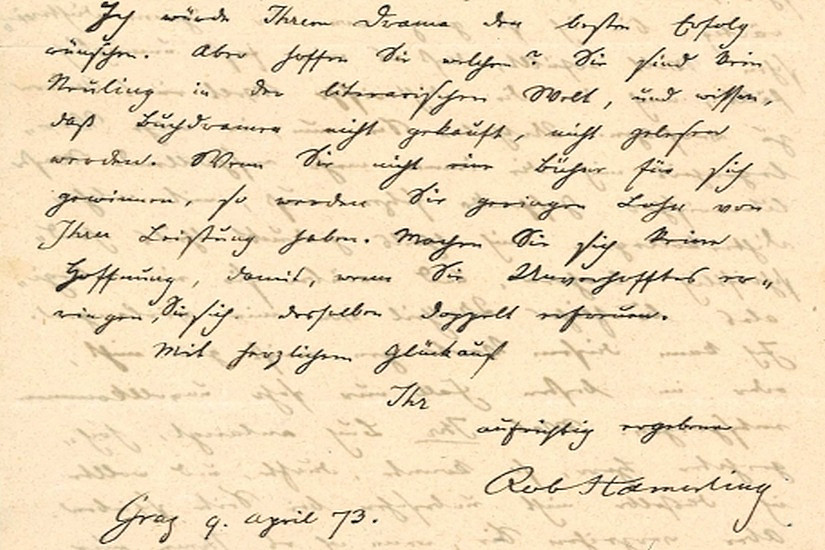 Ich würde Ihrem Drama den besten Erfolg
wünschen. Aber hoffen Sie welchen? Sie sind kein
Neuling in der literarischen Welt, und wissen,
daß Buchdramen nicht gekauft, nicht gelesen
werden. Wenn Sie nicht eine Bühne für sich
gewinnen, so werden Sie geringen Lohn von
Ihrer Leistung haben. Machen Sie sich keine
Hoffnung, damit, wenn Sie Unverhofftes er-
ringen, Sie sich desselben doppelt erfreuen.
Mit herzlichem Glückauf
Ihr
aufrichtig ergebener
Rob Hamerling
Graz 9. April 73.